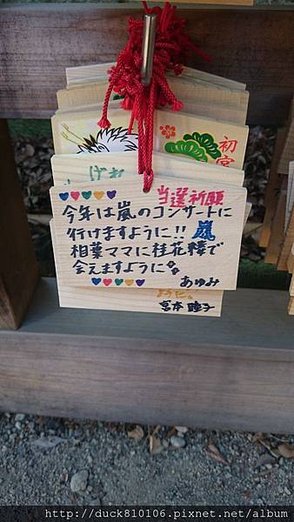 初宮
げお
当選祈願
今年は嵐のコンサートに
行けますように!! 嵐
相葉ママに桂花楼で
会えますように
あゆみ
ように
宮本 睦子
http://duck810106.pixnet.net/album